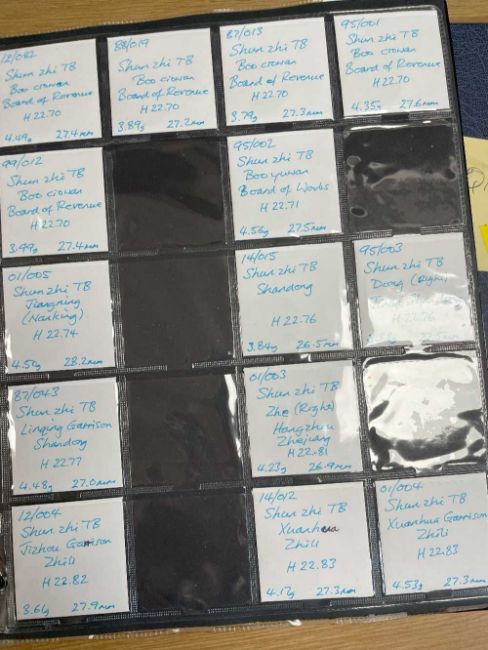 12/082
Shun zhi TB
Boo ciowan
Board of Revenue
H 22.70
4.49g 27.4mm
88/019
Shun zhi TB
Boo ciowan
Board of Revenue
H 22.70
3.89g 27.2mm
87/013
Shun zhi TB
Boo ciowan
Board of Revenue
H 22.70
3.79g 27.3mm
95/001
Shun zhi TB
Boo ciowan
Board of Revenue
H 22.70
4.35g 27.6mm
99/012
Shun zhi TB
Boo ciowan
Board of Revenue
H 22.70
3.99g 27.4mm
95/002
Shun zhi TB
Boo yuwan
Board of Works
H 22.71
4.56g 27.5mm
01/005
Shun zhi TB
Jiangning
(Nanking)
H 22.74
4.54g 28.2mm
14/015
Shun zhi TB
Shandong
H 22.76
3.84g 26.5mm
95/003
Shun zhi TB
Dong (Right)
H 22.76
87/043
Shun zhi TB
Linqing Garrison
Shandong
H 22.77
4.48g 27.0mm
01/003
Shun zhi TB
Zhe (Right)
Hangzhou
Zhejiang
H 22.81
4.23g 26.9mm
12/004
Shun zhi TB
Jizhou Garrison
Zhili
H 22.82
3.61g 27.9mm
14/012
Shun zhi TB
Xuanhua
Zhili
H 22.83
4.17g 27.3mm
01/004
Shun zhi TB
Xuanhua Garrison
Zhili
H 22.83
4.53g 27.3mm